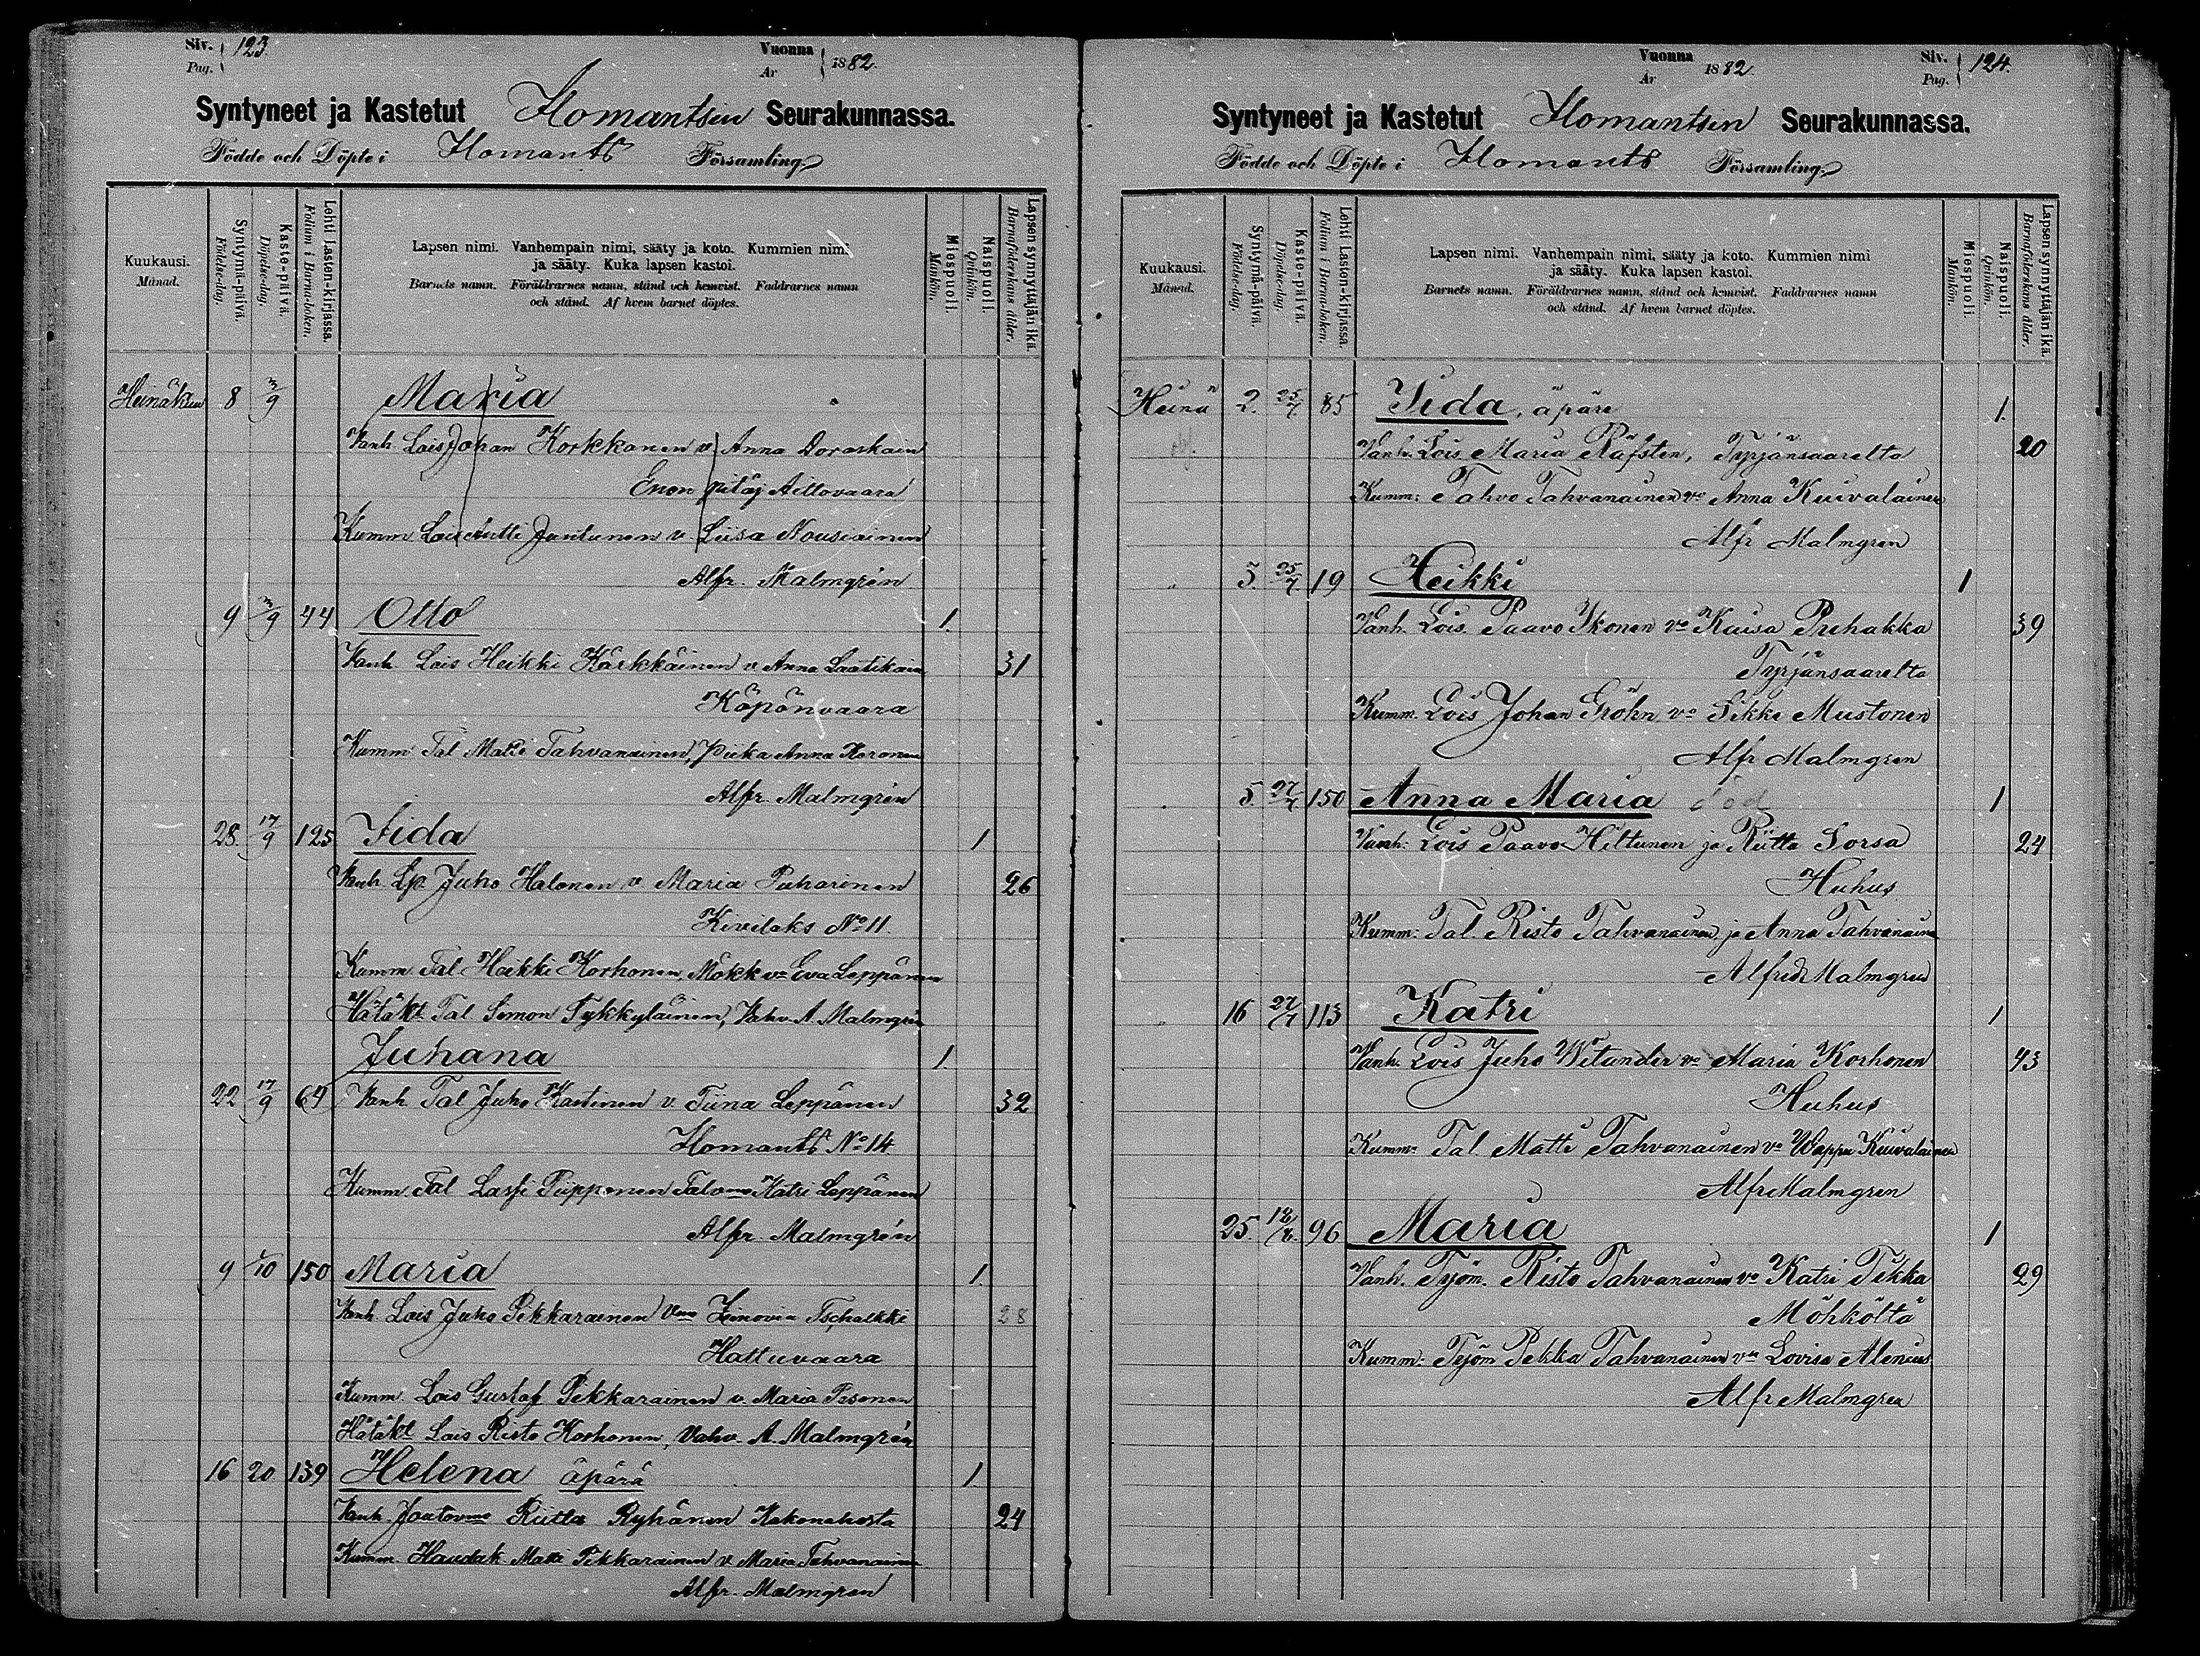 Siv. 123.
Pag.
Vuonna 1882.
År
Syntyneet ja Kastetut Ilomantsin Seurakunnassa.
Födde och Döpte i Ilomants Församling.
Kuukausi.
Månad.
Syntymä-päivä.
Födelse-dag.
Kaste-päivä.
Döpelse-dag.
Lehti Lasten-kirjassa.
Folium i Barna-boken.
Lapsen nimi. Vanhempain nimi, sääty ja koto. Kummien nimi
ja sääty. Kuka lapsen kastoi.
Barnets namn. Föräldrarnes namn, stånd och hemvist. Faddrarnes namn
och stånd. Af hvem barnet döptes.
Miespuoli.
Mankön.
Naispuoli.
Qvinkön.
Lapsen synnyttäjän ikä.
Barnaföderskans ålder.
Heinäkuu 8 3/9 Maria
Vanh. Lois Johan Korkkanen v Anna Doraskain
Enon pitäj Aittovaara
Kumm Lois Antti Jantunen v. Liisa Nousiainen
Alfr. Malmgrén
9 3/9 44 Otto 1.
Vanh Lois Heikki Kärkkäinen v Anna Laatikain 31
Käpönvaara
Kumm Tal Matti Tahvanainen, Piika Anna Koronen
Alfr. Malmgrén
28. 17/9 125 Iida 1
Vanh Lp. Juho Halonen v Maria Puharinen 26
Kivilaks No 11.
Kumm Tal Heikki Korhonen, Mökk vo Eva Leppänen
Hätäkt Tal Simon Tykkyläinen, Vahv. A. Malmgrén
Juhana 1.
22 17/9 64 Vanh Tal Juho Kastinen v. Tiina Leppänen 32
Ilomants No 14
Kumm Tal Lassi Piipponen Talomo Katri Leppänen
Alfr. Malmgrén
9 1/10 150 Maria 1.
Vanh Lois Juho Pikkarainen Vmo Zinovia Tschakki 28
Hattuvaara
Kumm. Lois Gustof Pikkarainen v. Maria Issonen
Hätäkt Lois Risto Korhonen, Vahv. A. Malmgrén
16 20 139 Helena äpärä 1.
Vanh. Joutovmo Riitta Ryhänen Kakonahosta 24
Kumm. Haudak Matti Pikkarainen v Maria Tahvanainen
Alfr. Malmgren
Vuonna 1882.
År
Siv. 124.
Pag.
Syntyneet ja Kastetut Ilomantsin Seurakunnassa.
Födde och Döpte i Ilomants Församling.
Kuukausi.
Månad.
Syntymä-päivä.
Födelse-dag.
Kaste-päivä.
Döpelse-dag.
Lehti Lasten-kirjassa.
Folium i Barna-boken.
Lapsen nimi. Vanhempain nimi, sääty ja koto. Kummien nimi
ja sääty. Kuka lapsen kastoi.
Barnets namn. Föräldrarnes namn, stånd och hemvist. Faddrarnes namn
och stånd. Af hvem barnet döptes.
Miespuoli.
Mankön.
Naispuoli.
Qvinkön.
Lapsen synnyttäjän ikä.
Barnaföderskans ålder.
Heinä 2. 25/7 85 Iida, äpäre 1.
Vanh. Lois. Maria Räfsten, Tyrjänsaarelta 20
Kumm: Tahvo Tahvanainen vo Anna Kuivalainen
Alfr Malmgren
" 5. 25/7. 19 Heikki 1
Vanh. Lois. Paavo Ikonen vo Kaisa Prehakka 39
Tyrjänsaarelta
Kumm. Lois Johan Gröhn vo Sikke Mustonen
Alfr Malmgren
5. 27/7 150 Anna Maria död 1
Vanh: Lois Paavo Hiltunen ja Riitta Sorsa 24
Huhus
Kumm: Tal. Risto Tahvanainen ja Anna Tahvanainen
Alfred Malmgren
" 16 27/7 113 Katri 1
Vanh. Lois Juho Witander vo Maria Korhonen 43
Huhus
Kumm: Tal Matti Tahvanainen vo Wappu Kuivalainen
Alfr Malmgren
25. 96 Maria 1
Vanh. Työm. Risto Tahvanainen vo Katri Tekka 29
Möhköltä
Kumm: Työm Pekka Tahvanainen vo Lovisa Alenius
Alfr Malmgren